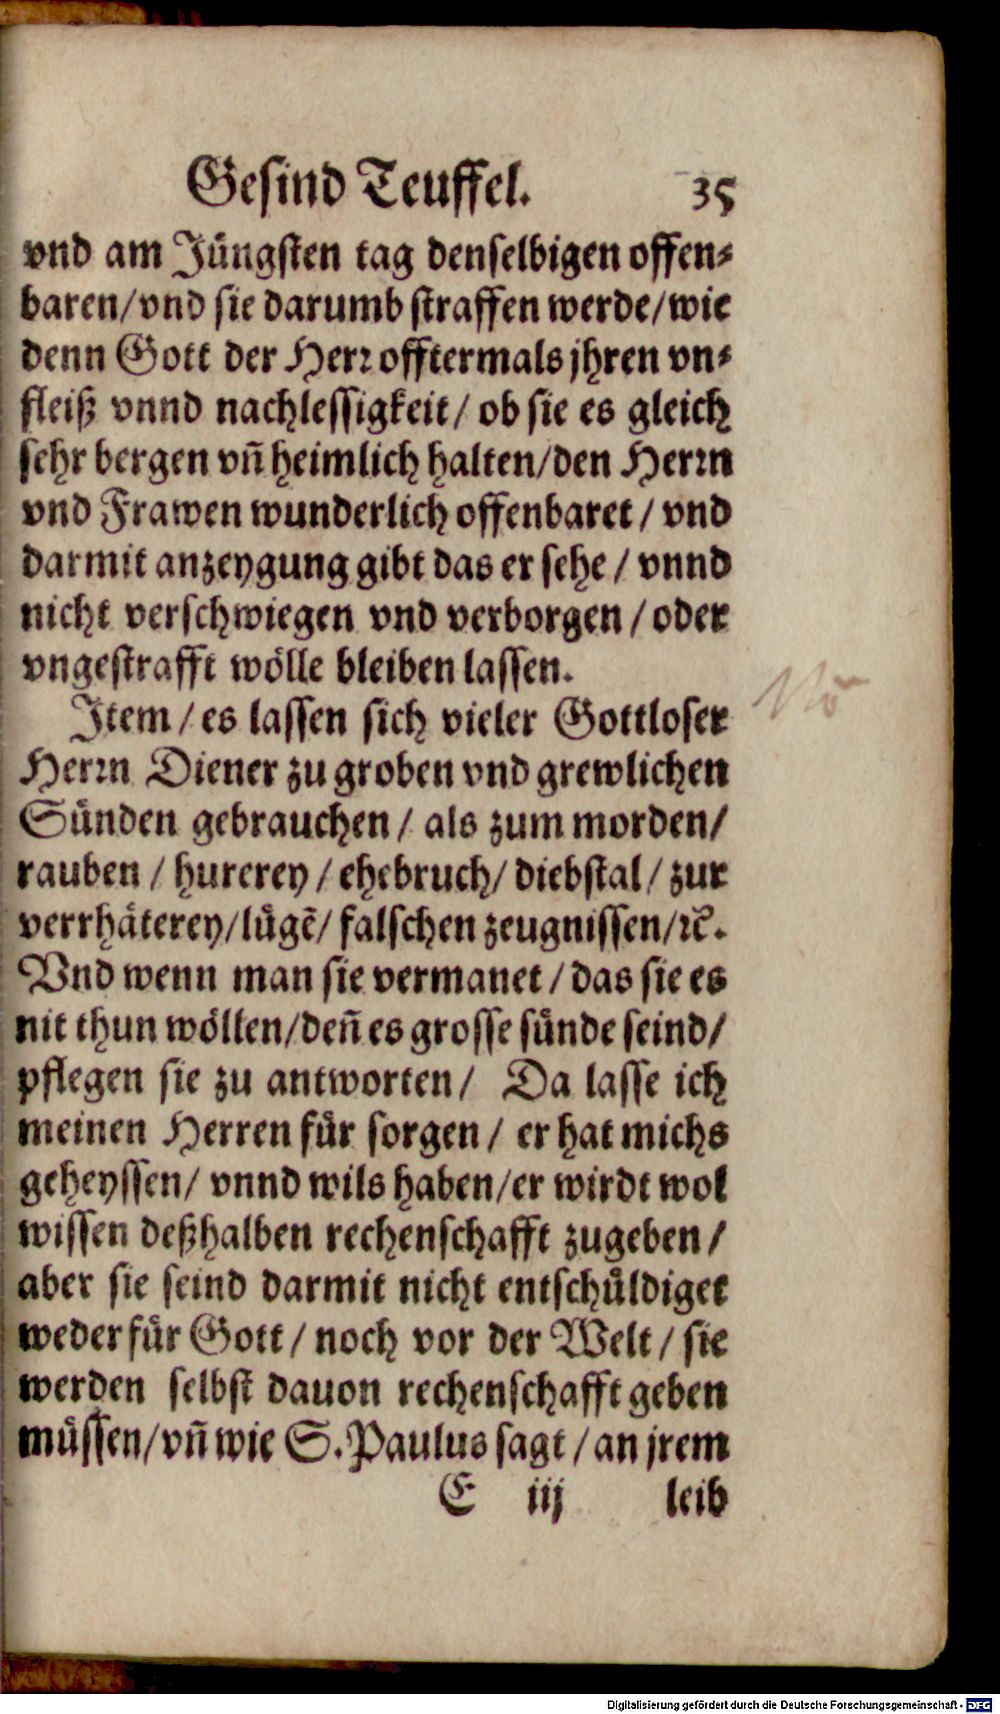 Gesind Teuffel. 35
vnd am Jüngsten tag denselbigen offen-
baren/vnd sie darumb straffen werde/wie
denn Gott der Herr offtermals jhren vn-
fleiß vnnd nachlessigkeit/ ob sie es gleich
sehr bergen vñ heimlich halten/den Herrn
vnd Frawen wunderlich offenbaret/ vnd
darmit anzeygung gibt das er sehe/ vnnd
nicht verschwiegen vnd verborgen/oder
vngestrafft wölle bleiben lassen.
Item/es lassen sich vieler Gottloser
Herrn Diener zu groben vnd grewlichen
Sünden gebrauchen/ als zum morden/
rauben/hurerey/ehebruch/diebstal/zur
verrhäterey/lügẽ/falschen zeugnissen/ꝛc̃.
Vnd wenn man sie vermanet/das sie es
nit thun wöllen/deñ es grosse sünde seind/
pflegen sie zu antworten/ Da lasse ich
meinen Herren für sorgen/ er hat michs
geheyssen/ vnnd wils haben/er wirdt wol
wissen deßhalben rechenschafft zugeben/
aber sie seind darmit nicht entschüldiget
weder für Gott/noch vor der Welt/ sie
werden selbst dauon rechenschafft geben
müssen/vñ wie S. Paulus sagt/an jrem
E iij leib
Digitalisierung gefördert durch die Deutsche Forschungsgemeinschaft - DFG